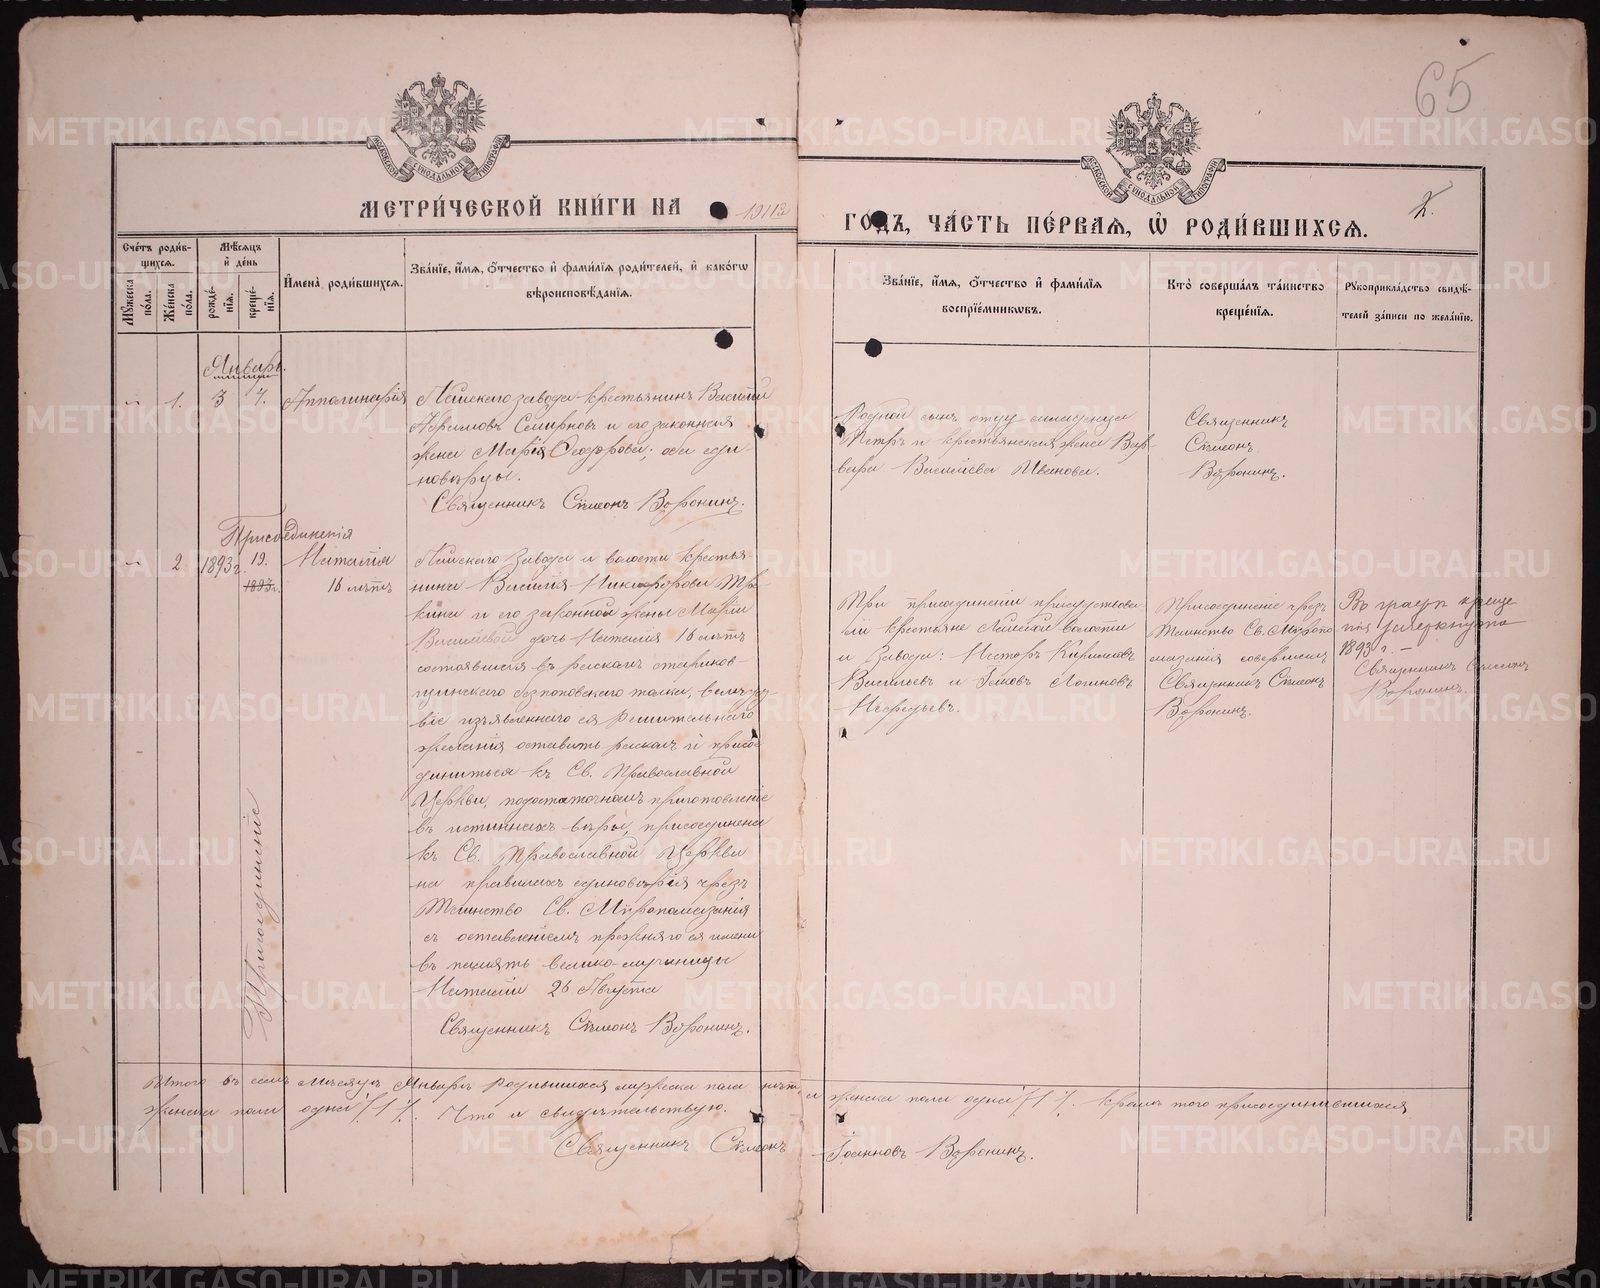 65
МЕТРИ́ЧЕСКОЙ КНИ́ГИ НА 19113 ГО́ДЪ, ЧА́СТЬ ПЕ́РВАЯ, Ѿ РОДИ́ВШИХСЯ.
2.
Сче́тъ роди́вшихся.
Мꙋ́жеска по́ла.
Же́нска по́ла.
Мѣ́сяцъ и҆ де́нь
рожде́нїя.
креще́нїя.
И҆мена̀ роди́вшихся.
Зва́нїе, и҆́мя, о҆́тчество и҆ фами́лїя роди́телей, и҆ како́гѡ
вѣроисповѣ́данїя.
Зва́нїе, и҆́мя, о҆́тчество и҆ фами́лїя
воспрїе́мникѡвъ.
Кто̀ соверша́лъ та́инство
креще́нїя.
Рꙋкоприкла́дство свидѣ́-
телей за́писи по жела́нїю.
Январь.
1. 3 4. Апполинарія
Лайскаго завода крестьянинъ Василій
Смирновъ и его законная
жена Марія Ѳеодорова; оба еди-
новѣрцы.
Священникъ Сѷмеонъ Воронинъ.
Родной сынъ отцу
Петръ и крестьянская жена Вар-
вара Василіева Иванова.
Священникъ
Сѷмеонъ
Воронинъ.
Присоединенія
2. 1893 г. 19. Наталія
1893 г. 16 лѣтъ
Лайскаго Завода и волости крестья-
нина Василія Никифорова
и его законной жены Маріи
дочь Наталія 16 лѣтъ
состоявшая въ расколѣ старико-
безпоповскаго толка, вслѣдст-
віе изъявленнаго ея рѣшительнаго
желанія оставить расколъ и присо-
диниться къ Св. Православной
Церкви, подостаточномъ приготовленіе
въ истинахъ вѣры, присоединена
къ Св. Православной Церкви
на правилахъ единовѣрія чрезъ
Таинство Св. Мѵропомазанія
съ оставленіемъ прежняго ея имени
въ память велико-мученицы
Наталіи 26 Августа
Священникъ Сѷмеонъ Воронинъ.
Присоединеніе
При присоединеніи присутствова-
ли крестьяне Лайской волости
и Завода: Несторъ Кириловъ
Васильевъ и Іаковъ Логиновъ
Мефодьевъ.
Присоединеніе чрезъ
Таинство Св. Мѵропо-
мазанія совершилъ
Священникъ Сѷмеонъ
Воронинъ.
Въ графѣ креще-
нія зачеркнуто
1893 г. —
Священникъ Сѷмеонъ
Воронинъ.
Итого въ семъ мѣсяцѣ Январѣ родившихся мужеска пола нѣтъ, а женска пола одна /1/. Кромѣ того присоединившихся
женска пола одна /1/. Что и свидѣтельствую.
Священникъ Сѷмеонъ Іоанновъ Воронинъ.
METRIKI.GASO-URAL.RU